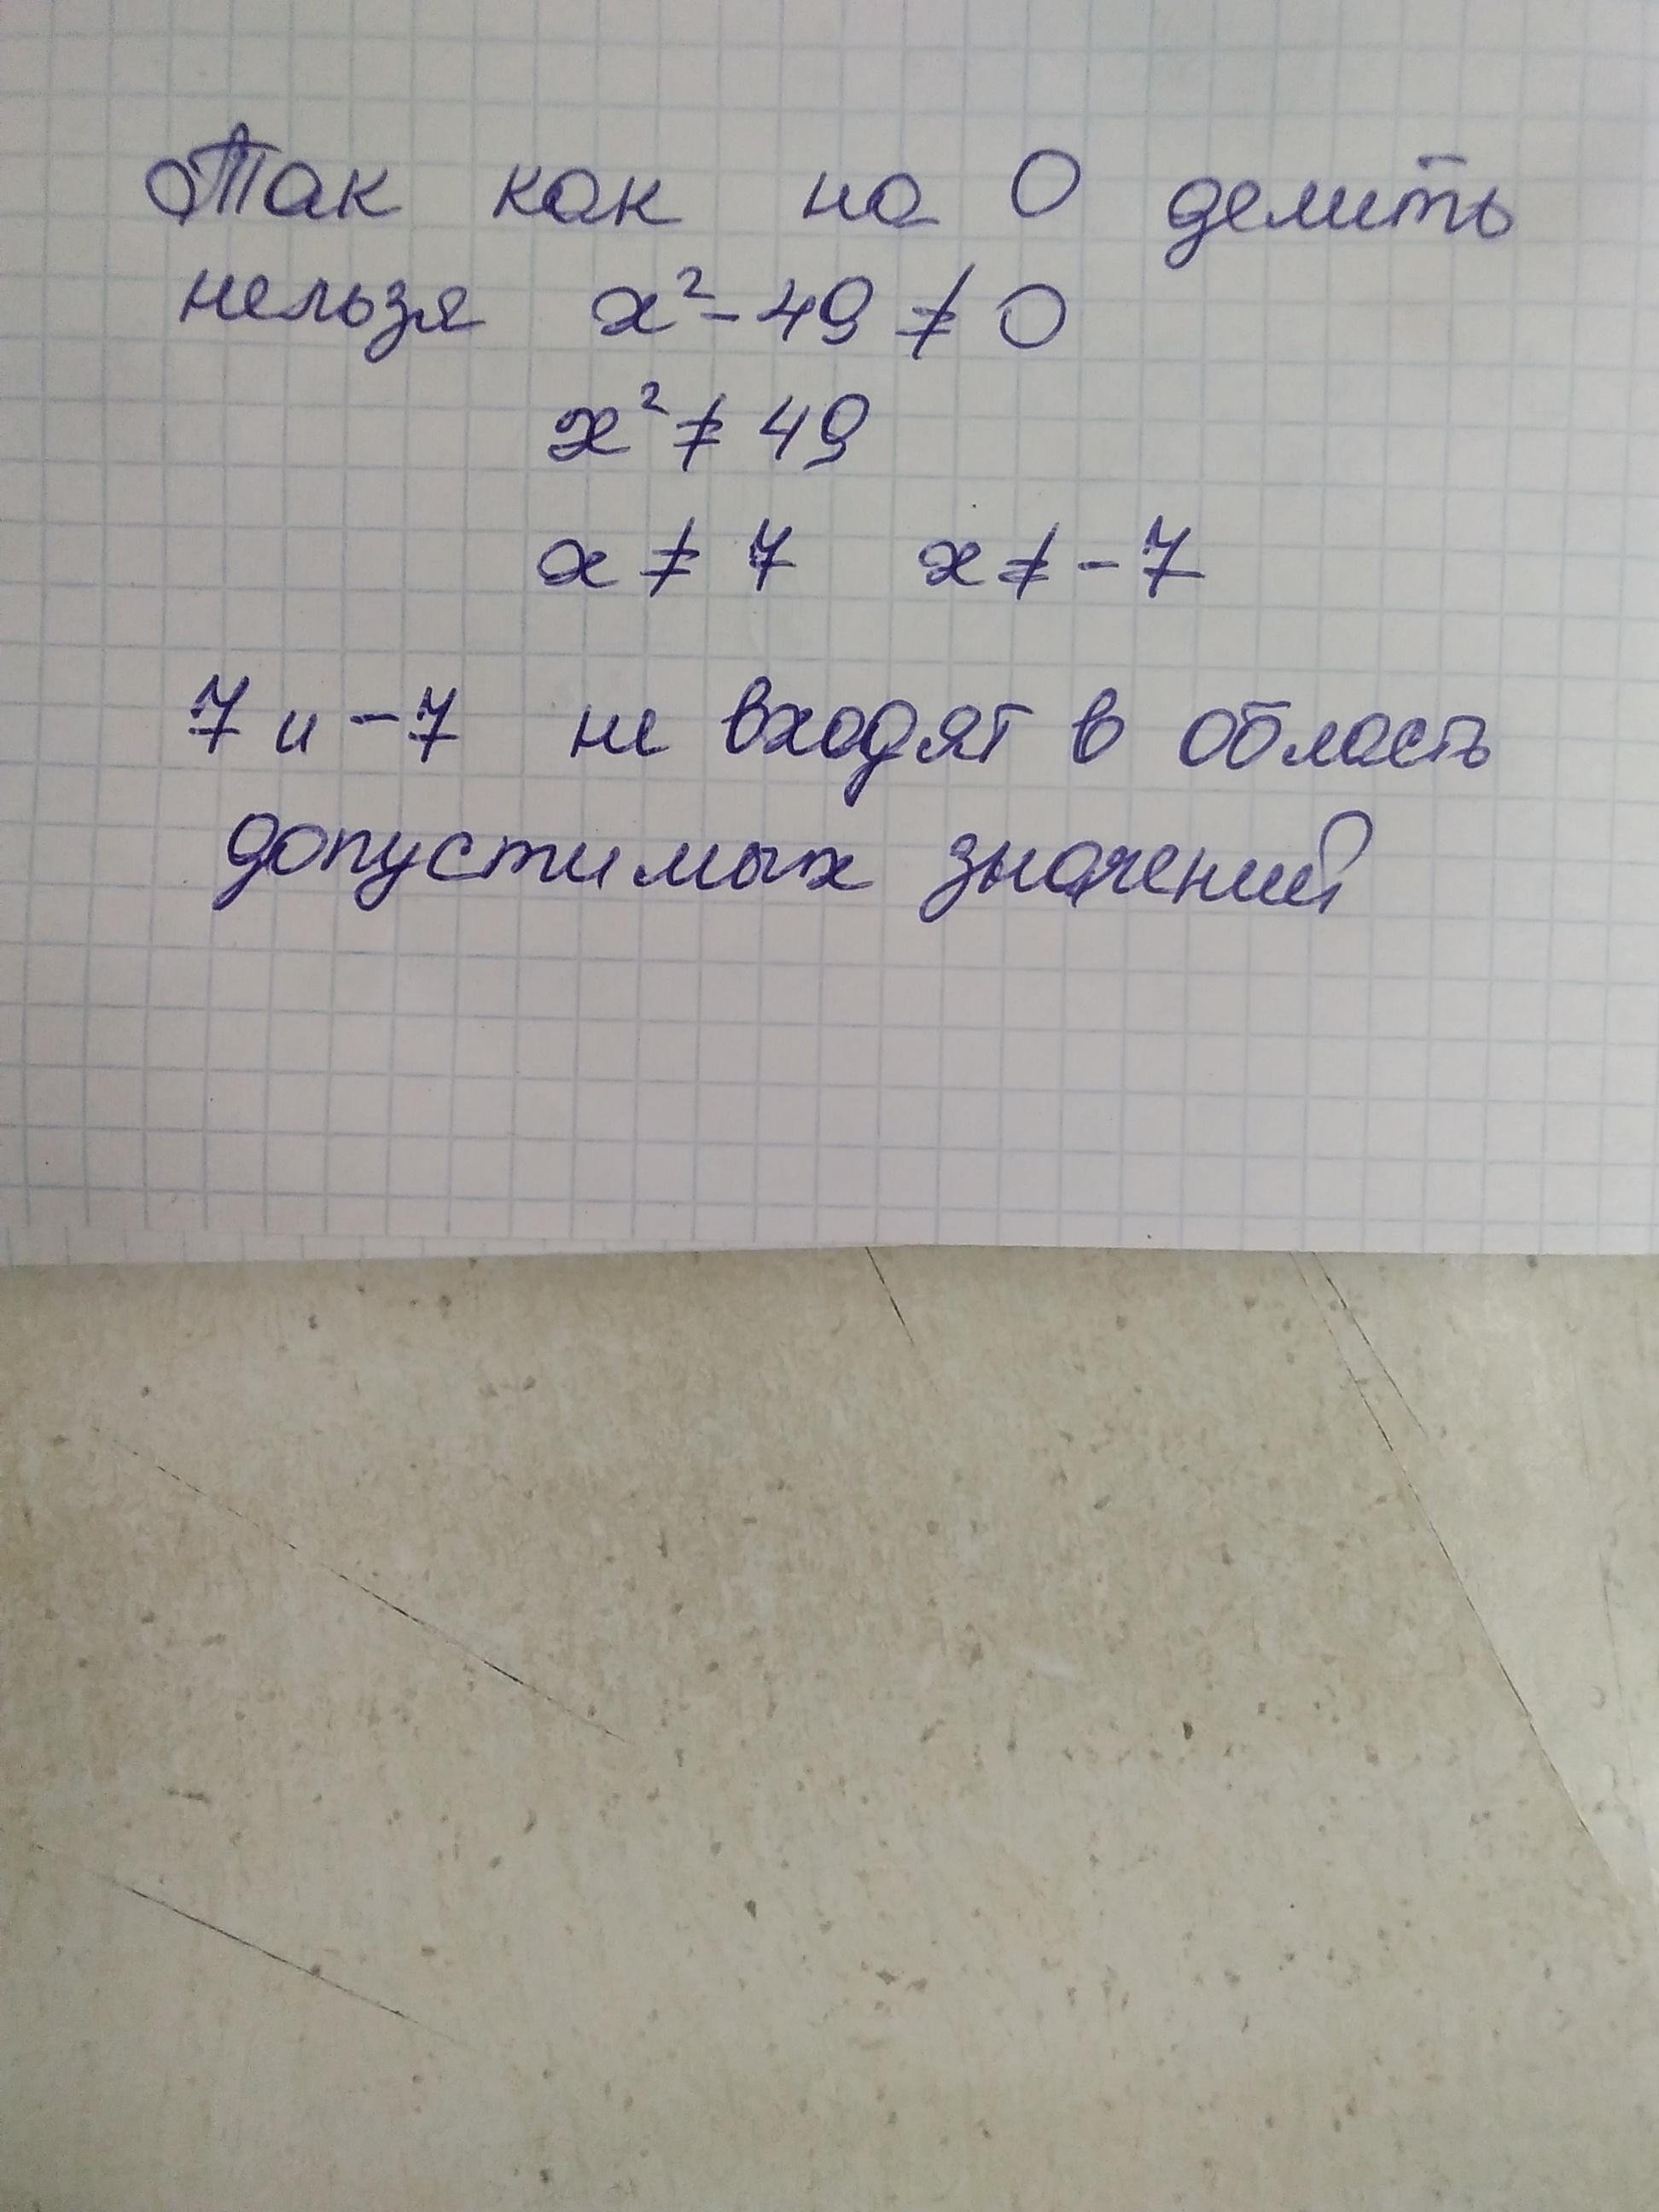 Так как на 0 делить
нельзя x² - 49 ≠ 0
x² ≠ 49
x ≠ 7 x ≠ -7
7 и -7 не входят в область
допустимых значений